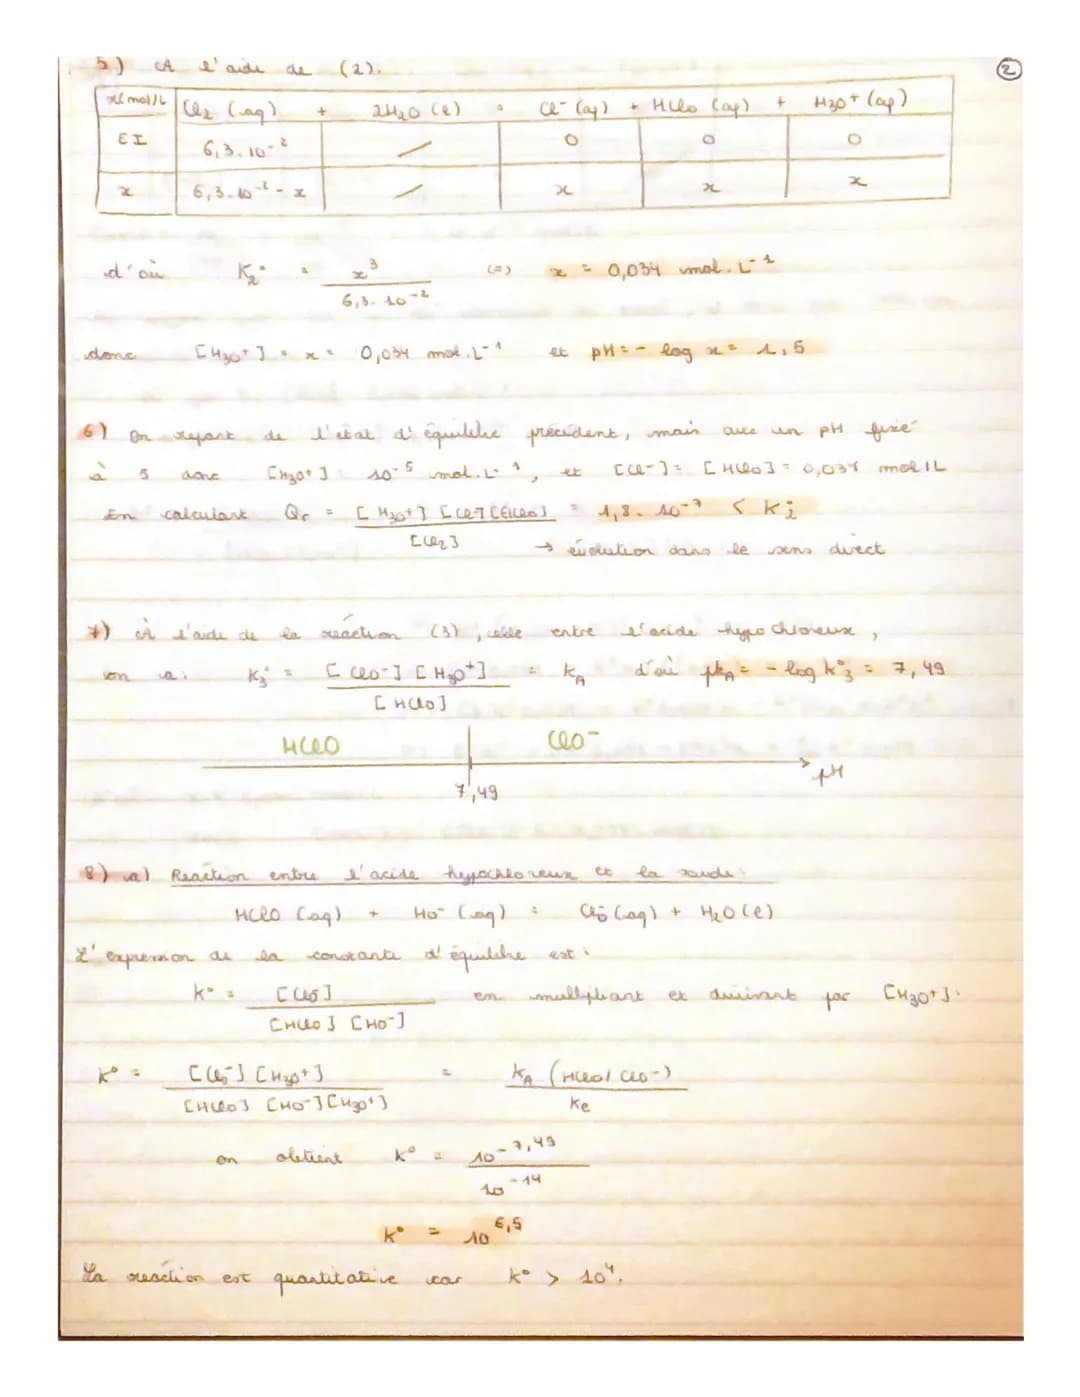 ②
5) A l'aide de (2).
x(mol/L Cl₂ (aq) + 2H₂O (l) = Cl⁻ (aq) + HClO (aq) + H₃O⁺ (aq)
EI 6,3.10⁻² / 0 0 0
x 6,3.10⁻² - x / x x x
d'où K₂° = x³ / 6,3.10⁻² (=) x = 0,034 mol.L⁻¹
donc [H₃O⁺] = x = 0,034 mol.L⁻¹ et pH = - log x = 1,5
6) On repart de l'état d'équilibre précédent, mais avec un pH fixé
à 5 donc [H₃O⁺] = 10⁻⁵ mol.L⁻¹, et [Cl⁻] = [HClO] = 0,034 mol/L
En calculant Qr = [H₃O⁺] [Cl⁻] [HClO] / [Cl₂] = 1,8.10⁻⁷ < K₂°
→ évolution dans le sens direct
7) À l'aide de la réaction (3), celle entre l'acide hypochloreux,
on a: K₃° = [ClO⁻] [H₃O⁺] / [HClO] = KA d'où pKA = - log K°₃ = 7,49
HClO ClO⁻
7,49 pH
8) a) Réaction entre l'acide hypochloreux et la soude:
HClO (aq) + HO⁻ (aq) = ClO⁻ (aq) + H₂O (l)
L'expression de la constante d'équilibre est:
K° = [ClO⁻] / [HClO] [HO⁻] en multipliant et divisant par [H₃O⁺].
K° = [ClO⁻] [H₃O⁺] / [HClO] [HO⁻] [H₃O⁺] = KA (HClO/ClO⁻) / Ke
on obtient K° = 10⁻⁷,⁴⁹ / 10⁻¹⁴
K° = 10⁶,⁵
La réaction est quantitative car K° > 10⁴.